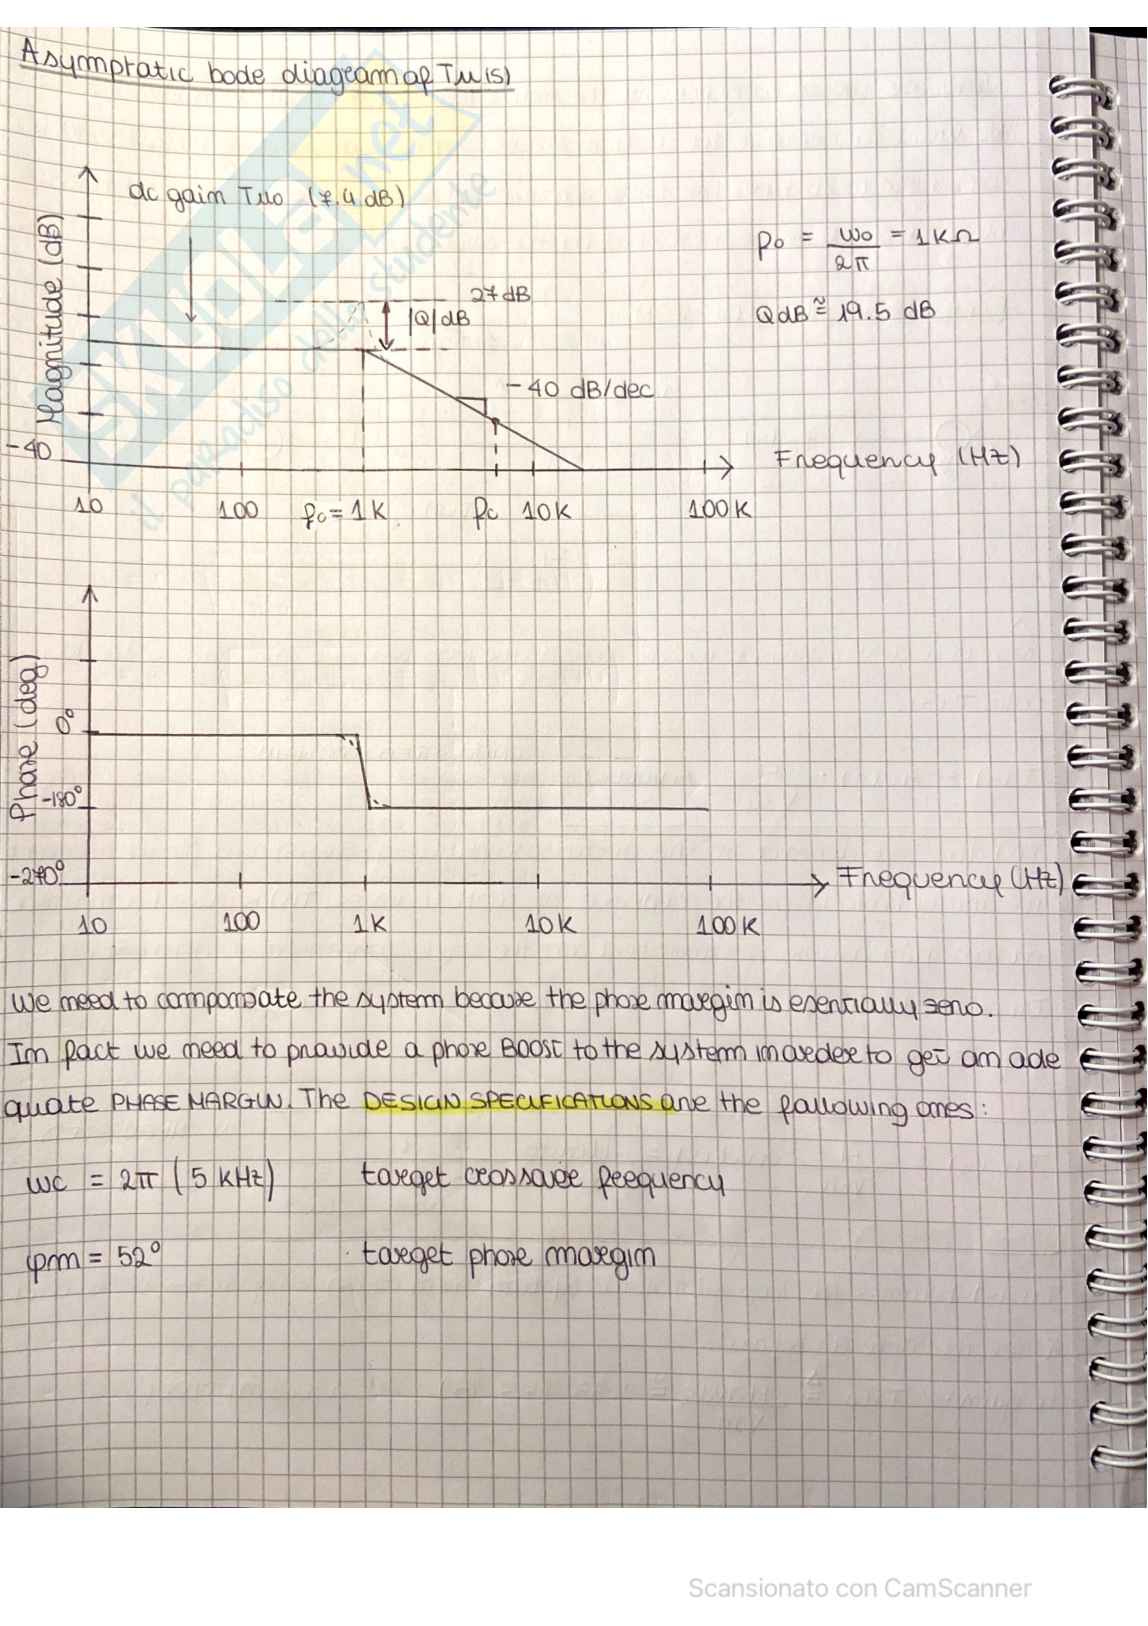 Asymptotic bode diagram of Tu(s)
dc gain Tuo (7.4 dB)
Magnitude (dB)
fo = wo/2π = 1KΩ
QdB ≅ 19.5 dB
27dB
|Q|dB
-40 dB/dec
-40
Frequency (Hz)
10 100 fo=1K fc 10K 100K
Phase (deg)
0°
-180°
-270°
Frequency (Hz)
10 100 1K 10K 100K
We need to compensate the system because the phase margin is esentially zero.
In fact we need to provide a phase BOOST to the system in order to get an ade
quate PHASE MARGIN. The DESIGN SPECIFICATIONS are the following ones:
wc = 2π (5 kHz) target crossover frequency
φm = 52° target phase margin
Scansionato con CamScanner